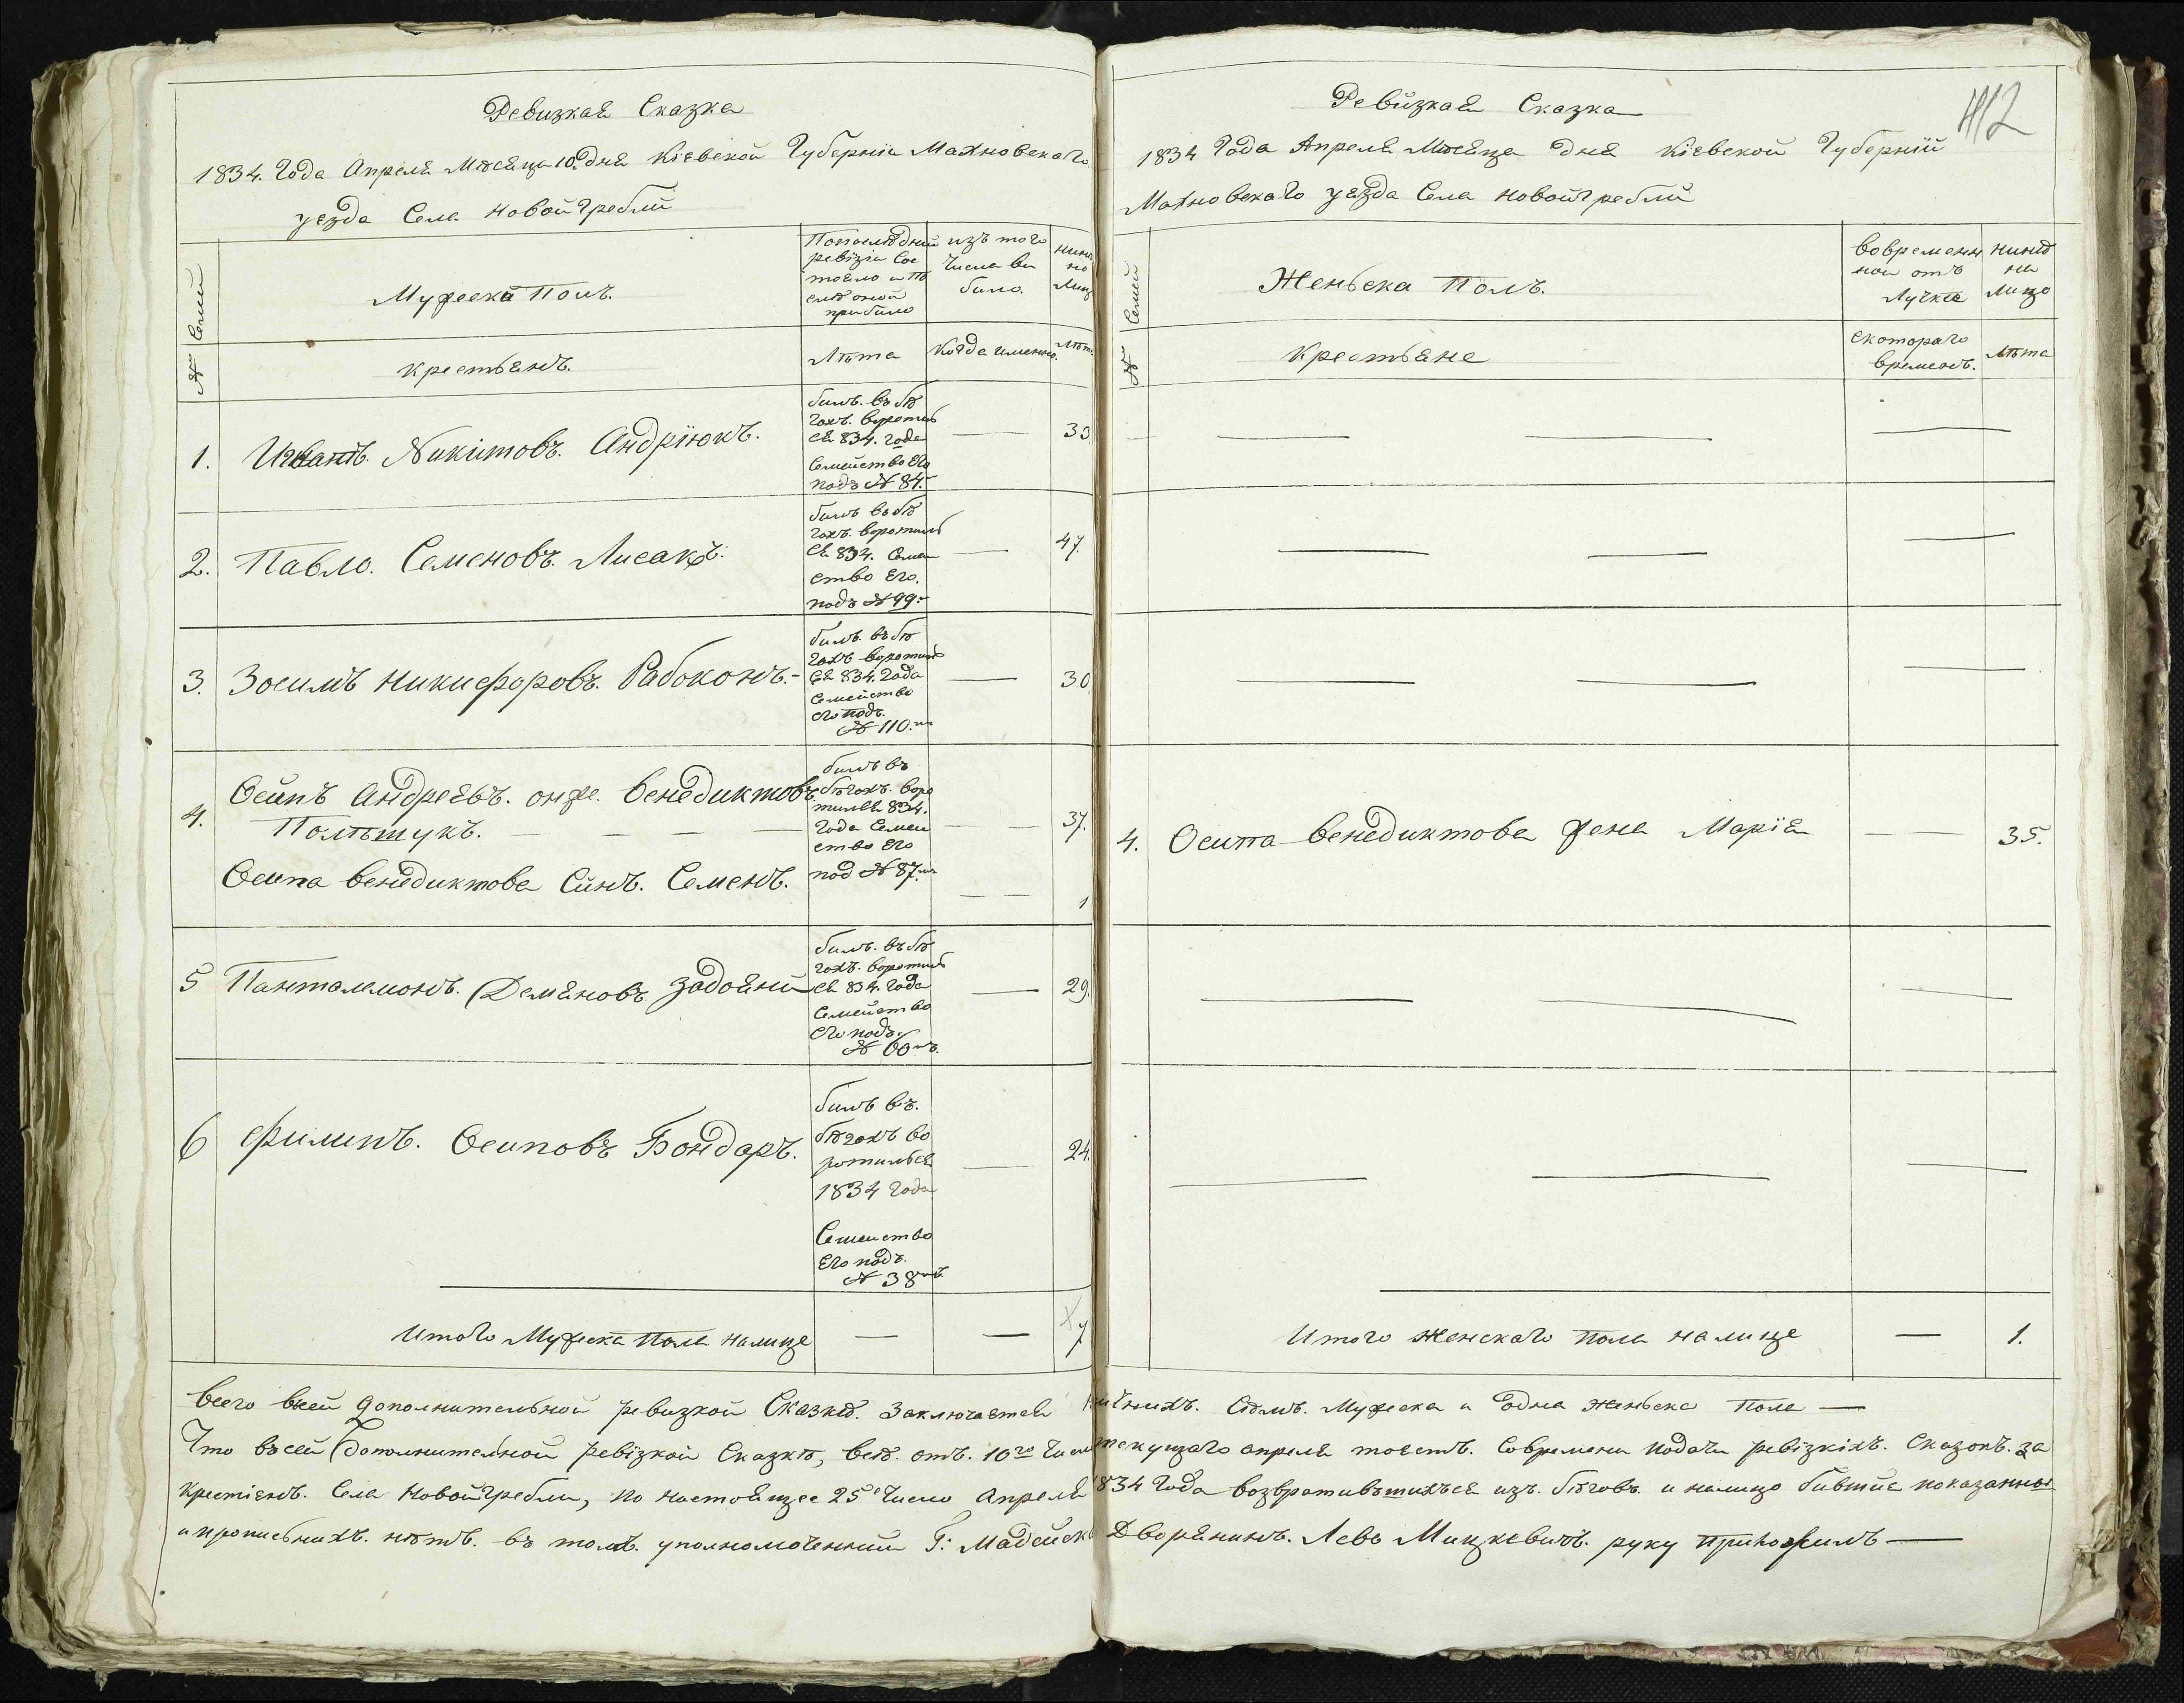 Ревизкая Сказка
1834. Года Апреля Мѣсяца 10. дня Кіевской Губерніи Махновскаго
уезда Села Новойгребли
№ Семей
Мужеска Полъ.
Попоследний
ревізіи Сос
тояло и по
слѣ оной
прибило
изъ того
Числа ви
било.
нинѣ
на
Лицо
крестьянъ.
Лѣта
Когда именно.
Лѣта
1. Иванъ Никитовъ. Андріюкъ.
билъ. въ бѣ
гахъ. воротил
ся 834. года
Семейство Его
подъ № 84.
— 33
2. Павло. Семеновъ. Лисакъ.
билъ въ бѣ
гахъ. воротил
ся 834. Семей
ство Его.
подъ № 99.
— 47.
3. Зосимъ Никифоровъ. Рабоконъ.-
билъ. въ бѣ
гахъ воротил
ся 834. Года
Семейство
его подъ.
№ 110.
— 30.
4. Осипъ Андреевъ. онже. Венедиктовъ.
Полѣщукъ. — — —
билъ въ
бѣгахъ. воро
тился 834.
Года Семей
ство Его
под № 87.
— 37.
Осипа Венедиктова Синъ. Семенъ.
— — 1
5 Панталемонъ. Демяновъ Задойни
билъ. въ бѣ
гахъ. воротил
ся 834. Года
Семейство
его подъ.
№ 60
— 29.
6 Филипъ. Осиповъ Бондаръ.
билъ въ.
бѣгахъ во
ротилься
1834 Года
Семейство
Его подъ.
№ 38
— 24.
Итого Мужеска Пола налице — — 7
Ревизкая Сказка
412
1834 Года Апреля Мѣсяца дня Кіевской Губерніи
Махновскаго уезда Села Новойгребли
№ Семей
Женьска Полъ.
вовременн
ной отъ
Лучке
нинѣ
на
Лицо
Крестьяне
скотораго
времени.
Лѣта
4. Осипа Венедиктова жена Марія — — 35.
Итого женскаго пола налице — 1.
Всего всей дополнительной ревизкой Сказкѣ. Заключается наличнихъ. Сѣмъ. Мужеска и Одна женьска Пола —
Что въсей Дополнителной ревізкой Сказкѣ, всѣ. отъ. 10го Числа текущаго апреля тоестъ. Современи подачи ревізкіхъ. Сказокъ. за
Крестіянъ. Села Новойгребли, по настоящее 25е Число Апреля 1834 Года возвратившихъся изъ. бѣговъ и налицо бившіе показанны
и прописнихъ. нѣтъ. въ томъ. уполномоченний Г: Мадейск Дворянинъ. Левъ Мицкевичъ. руку приложилъ —